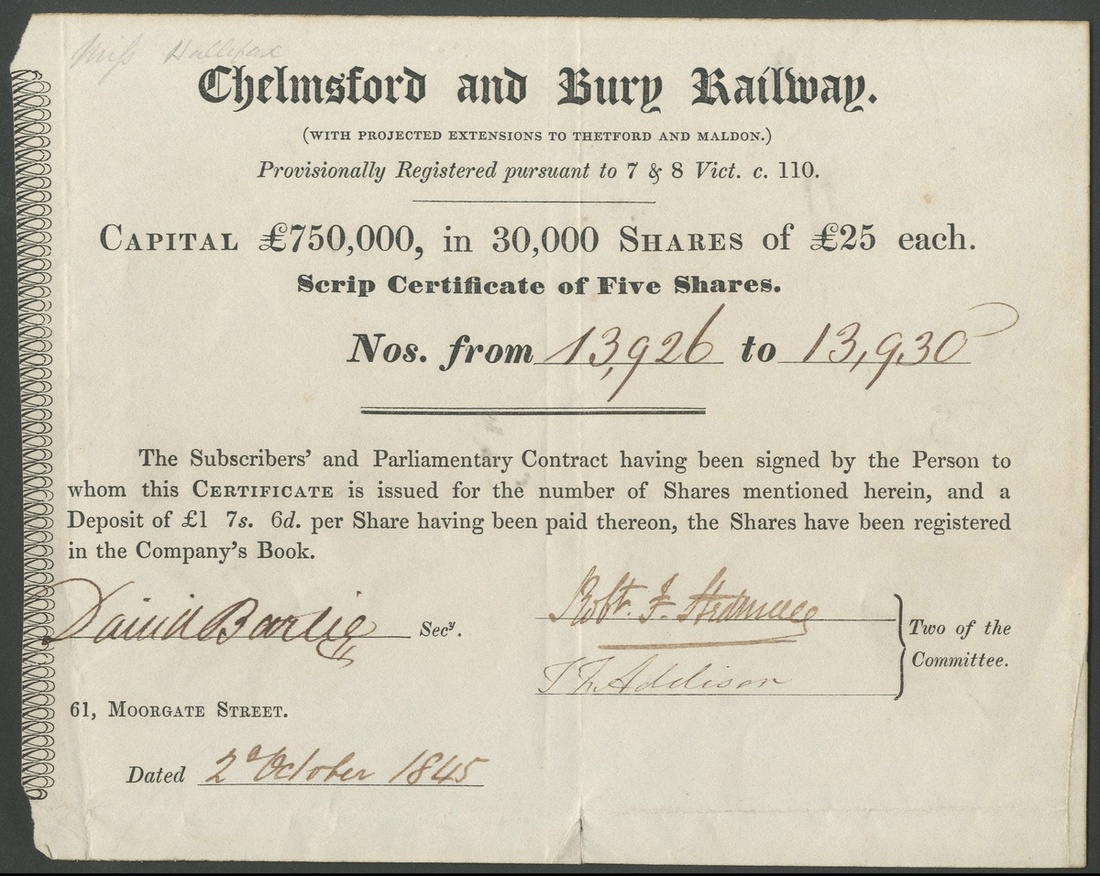 Miss Hallifax
Chelmsford and Bury Railway.
(WITH PROJECTED EXTENSIONS TO THETFORD AND MALDON.)
Provisionally Registered pursuant to 7 & 8 Vict. c. 110.
CAPITAL £750,000, in 30,000 SHARES of £25 each.
Scrip Certificate of Five Shares.
Nos. from 13,926 to 13,930
The Subscribers' and Parliamentary Contract having been signed by the Person to
whom this CERTIFICATE is issued for the number of Shares mentioned herein, and a
Deposit of £1 7s. 6d. per Share having been paid thereon, the Shares have been registered
in the Company's Book.
Robt. F.
David Secy.
Two of the
Addison
Committee.
61, MOORGATE STREET.
Dated 2d October 1845